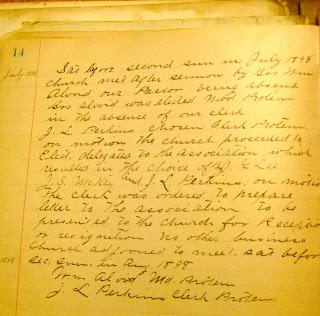 14
July 1898
Sat before second sun in July 1898
church met after sermon by Bro Wm
Alvord our Pastor being absent
Bro alvid was Elected Mod Protem
in the absence of our clerk
J. L. Perkins Chosen Clerk Protem.
on motion the church proceeded to
Elect delegates to the association which
resulted in the choice of G Lee
J. S. McKee and J. L. Perkins, on motion
The clerk was ordered to prepare
letter to the association to be
presented to the church for Reception
or resignation no other business
Church adjorned to meet. sat before
sec. sun. in Aug 1898
1898
Wm Alvid Md. Protem
J. L. Perkins Clerk Protem